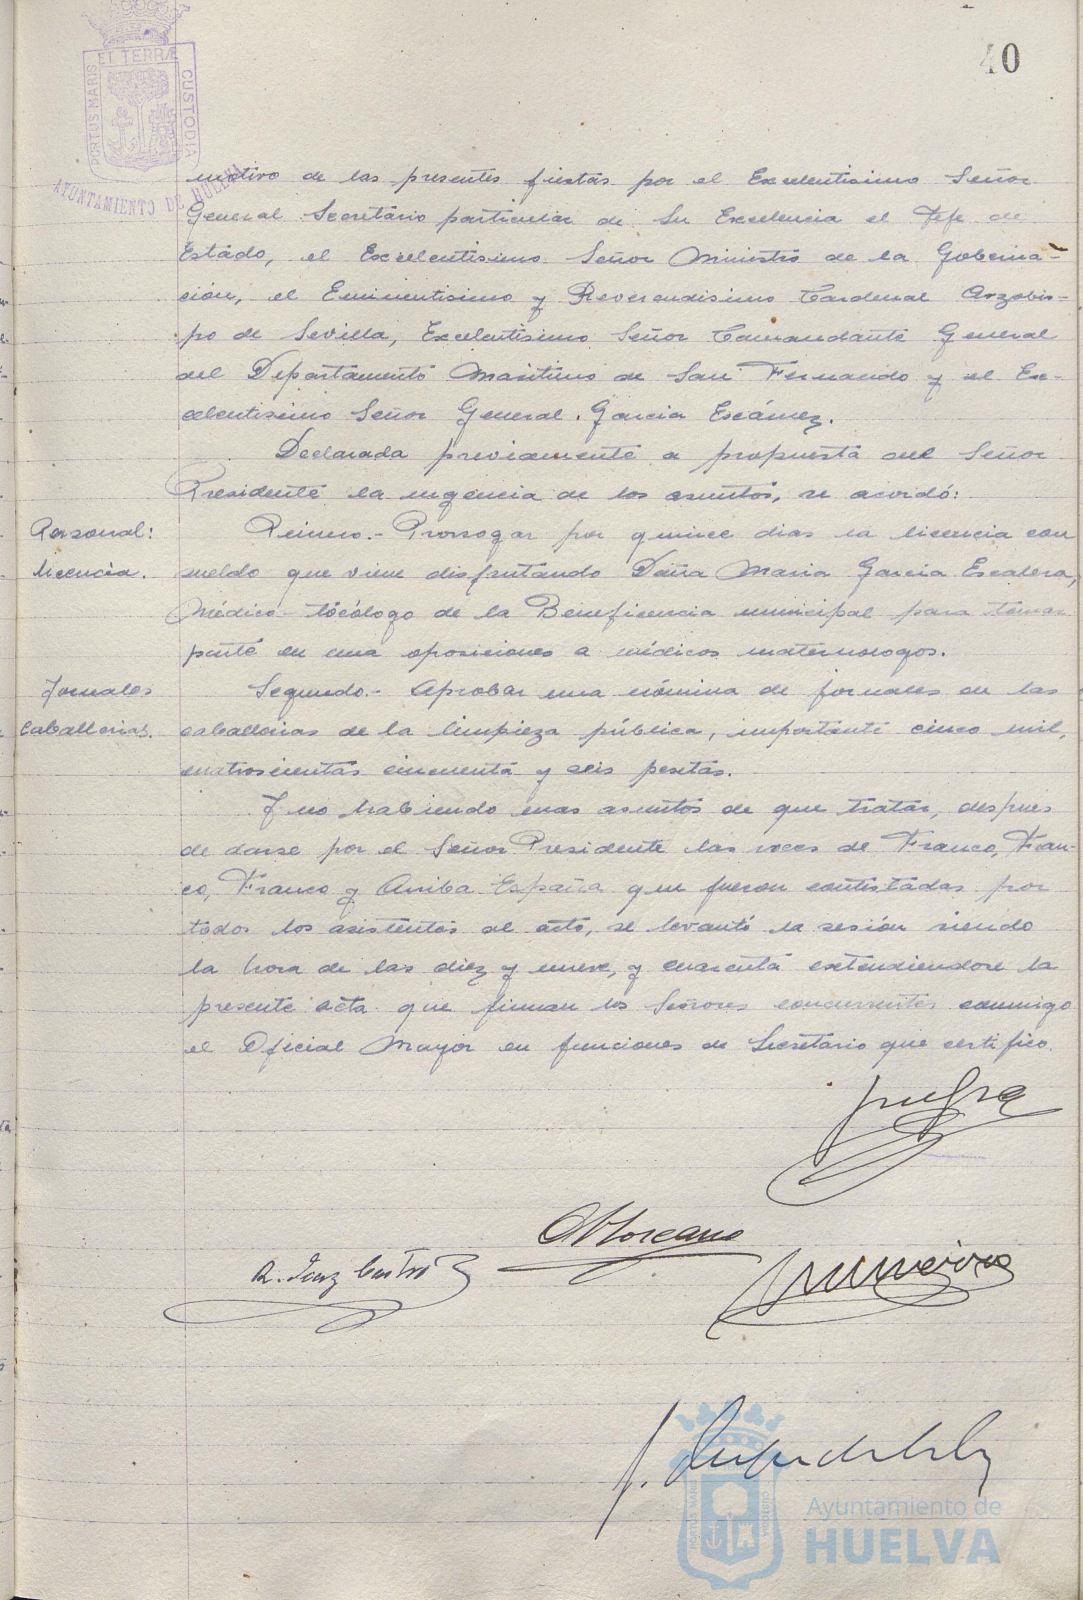 40
PORTUS MARIS ET TERRÆ CUSTODIA
AYUNTAMIENTO DE HUELVA
motivo de las presentes fiestas por el Excelentisimo Señor
General Secretario particular de Su Excelencia el Jefe de
Estado, el Excelentisimo Señor Ministro de la Goberna-
ción, el Eminentisimo y Reverendisimo Cardenal Arzobis-
po de Sevilla, Excelentisimo Señor Comandante General
del Departamento Maritimo de San Fernando y el Ex-
celentisimo Señor General García Escámez.
Declarada previamente a propuesta del Señor
Presidente la urgencia de los asuntos, se acordó:
Personal:
licencia.
Primero.- Prorrogar por quince dias la licencia con
sueldo que viene disfrutando Doña Maria García Escalera,
Médico-tocólogo de la Beneficencia municipal para tomar
parte en una oposiciones a médicos maternologos.
Jornales
caballerias.
Segundo.- Aprobar una nómina de jornales en las
caballerias de la limpieza pública, importante cinco mil,
cuatrocientas cincuenta y seis pesetas.
Y no habiendo mas asuntos de que tratar, despues
de darse por el Señor Presidente las voces de Franco, Fran-
co, Franco y Arriba España que fueron contestadas por
todos los asistentes al acto, se levantó la sesión siendo
la hora de las diez y nueve, y cuarenta extendiendose la
presente acta que firman los Señores concurrentes conmigo
el Oficial Mayor en funciones de Secretario que certifico.
Ayuntamiento de
HUELVA